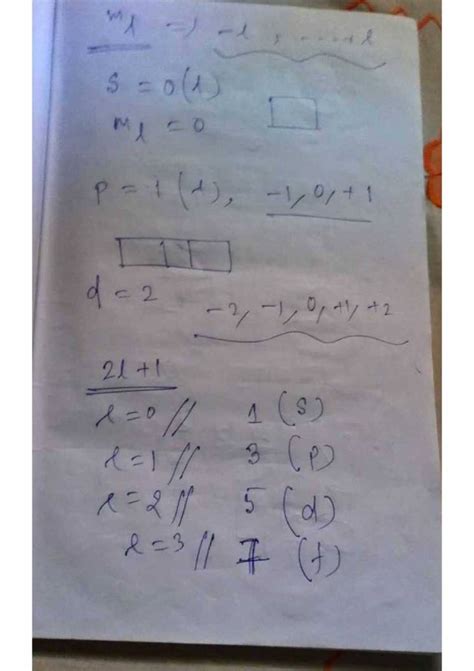 mℓ => -ℓ, ....+ℓ
S = 0(ℓ)
mℓ = 0
P = 1 (ℓ), -1, 0, +1
d = 2 -2, -1, 0, +1, +2
2ℓ+1
ℓ=0// 1 (S)
ℓ=1// 3 (P)
ℓ=2// 5 (d)
ℓ=3// 7 (f)